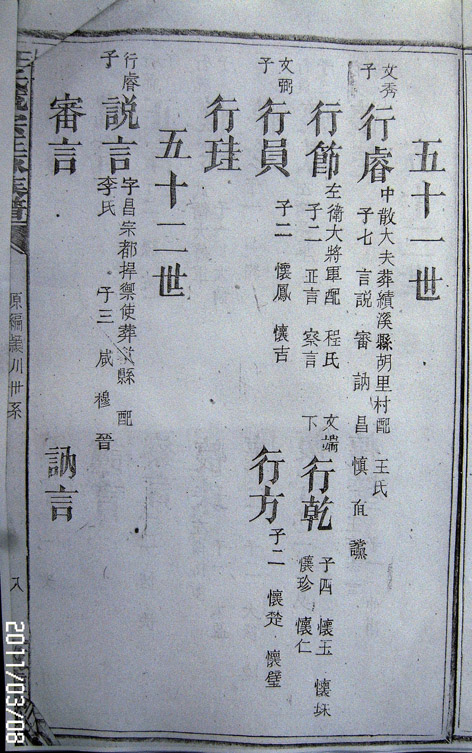 五十一世
文秀子 行睿 中散大夫葬績溪縣胡里村配 王氏
子七 言說 審 訥 昌 慎 直 讜
行節 左衛大將軍配 程氏
子二 正言 察言 下
文端 行乾 子四 懷玉 懷珠
懷珍 懷仁
文弼子 行員 子二 懷鳳 懷吉
行方 子二 懷楚 懷璧
行珪
五十二世
行睿子 說言 字昌宗都捍禦使葬 縣 配
李氏 子三 咸 穆 晉
審言 訥言
原編 川世系
2011/03/08